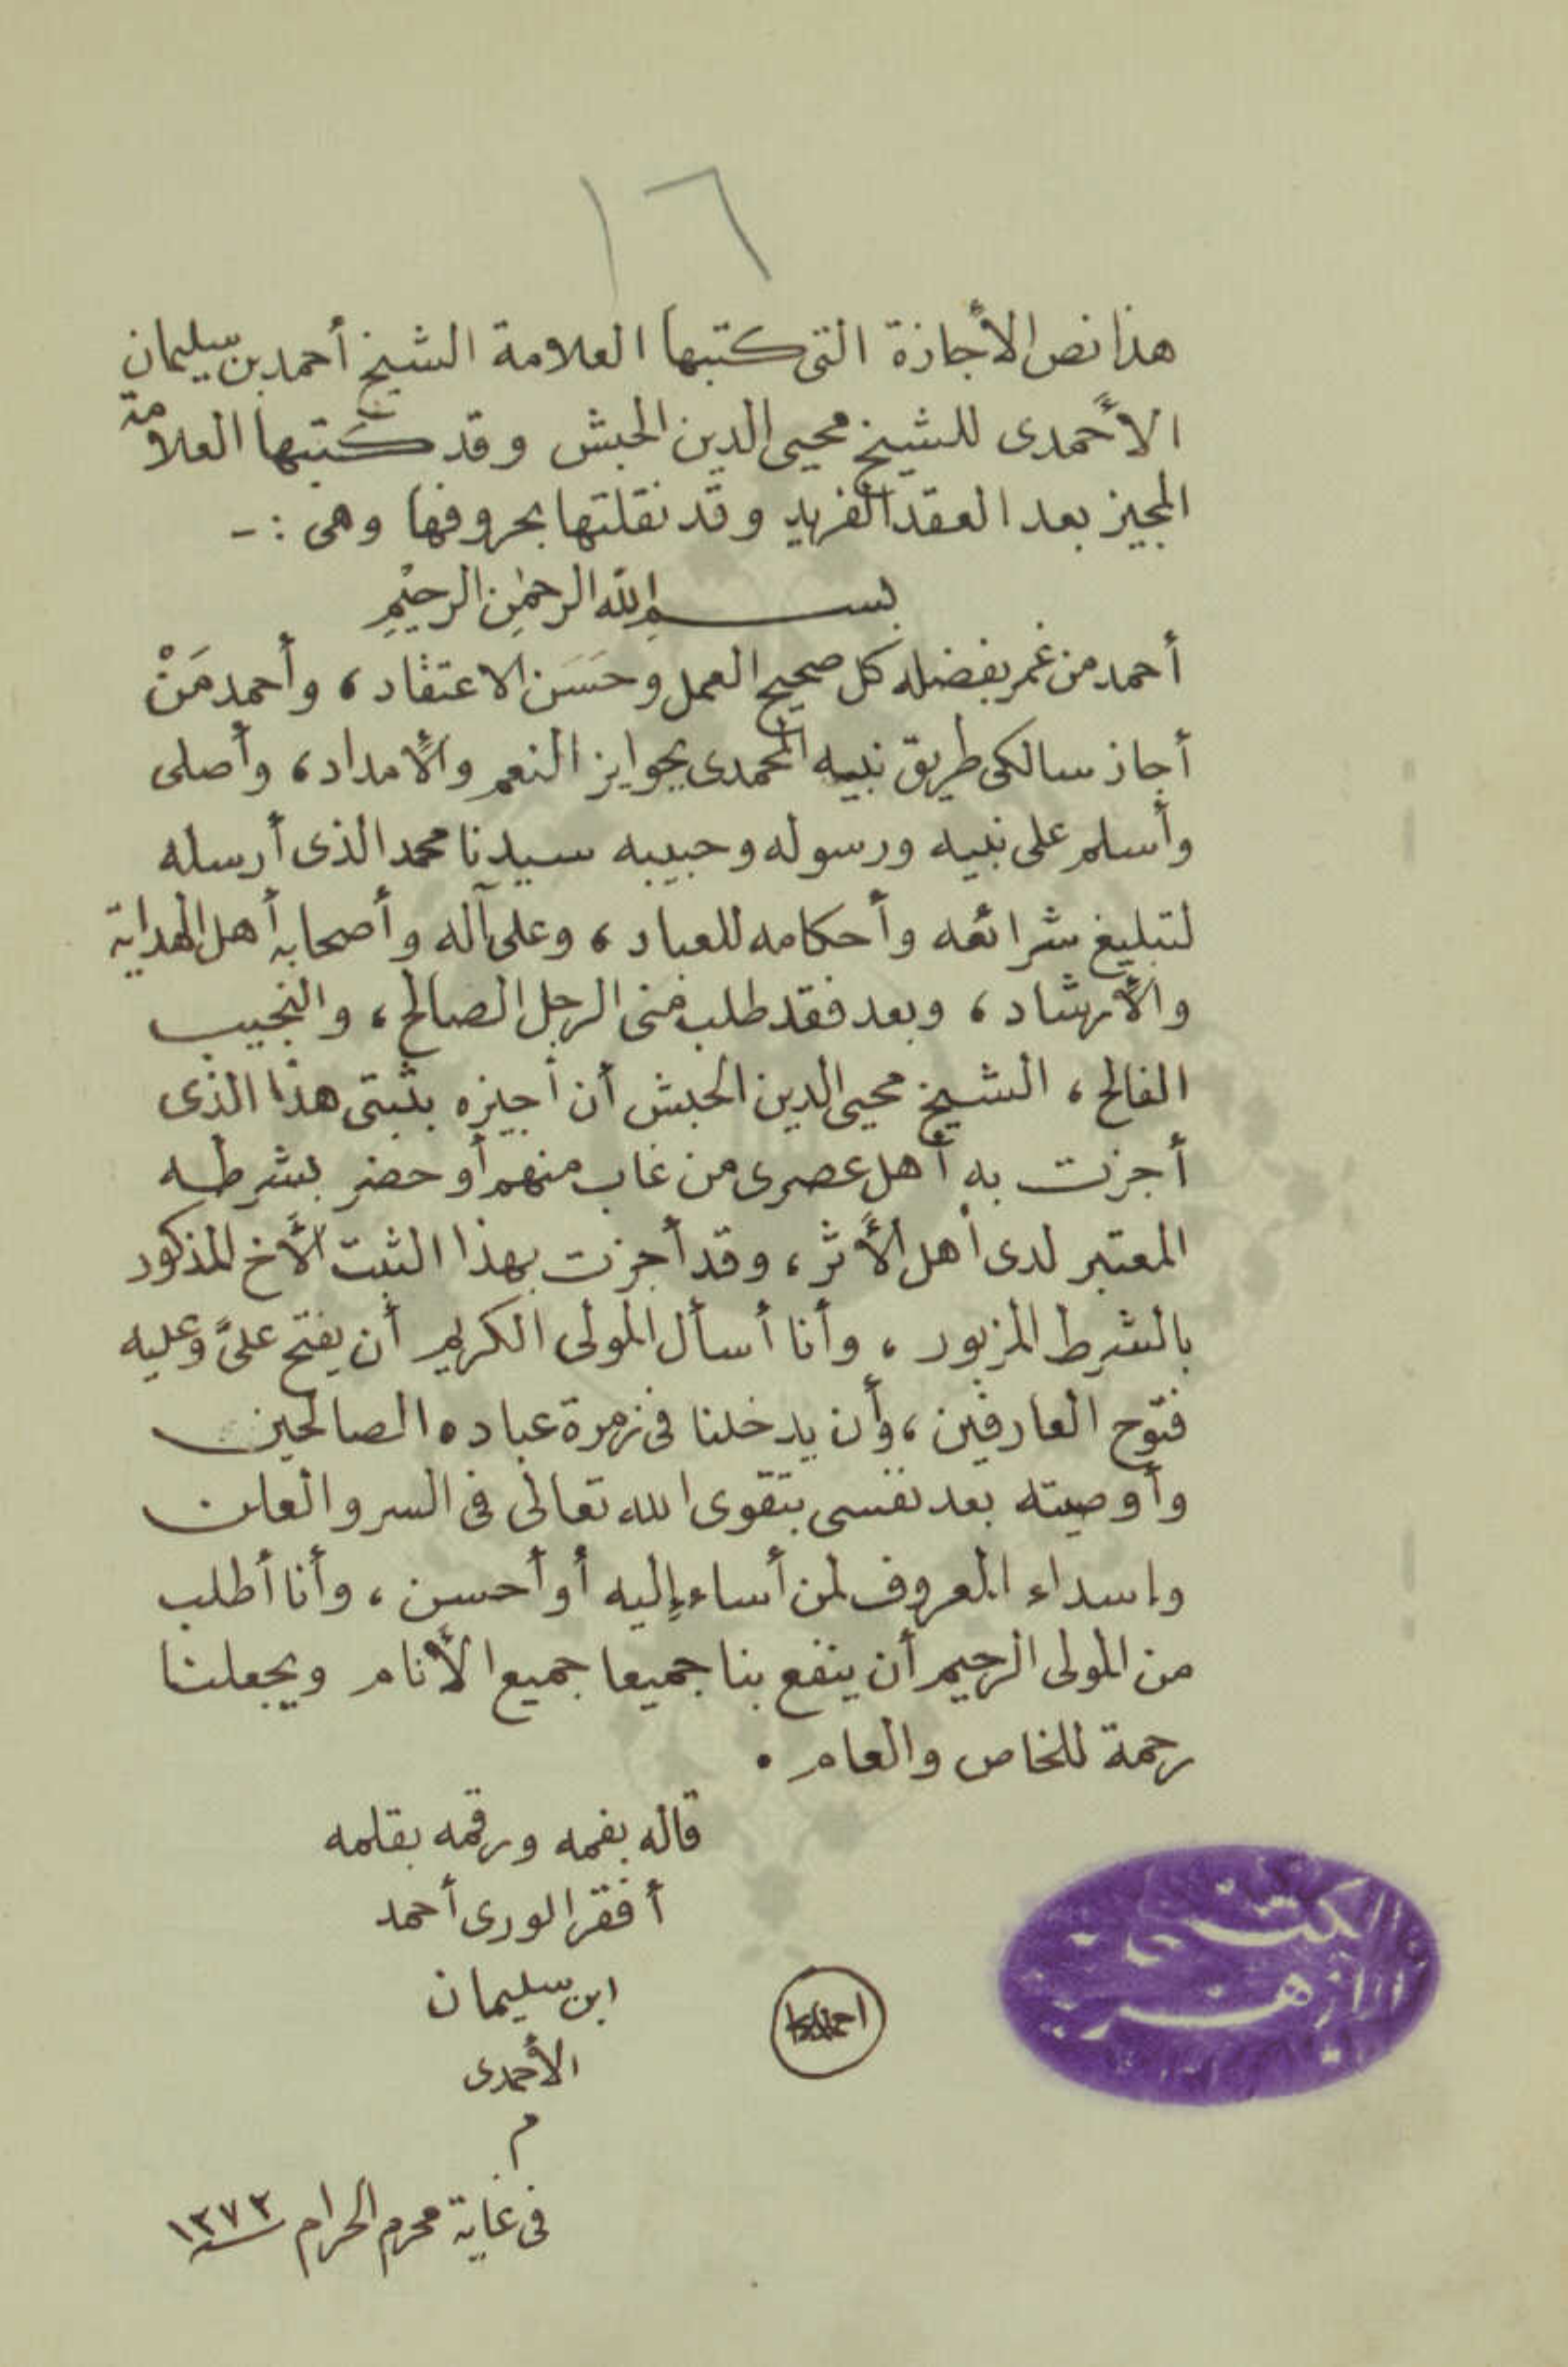 ١٦
هذا نص الأجازة التى كتبها العلامة الشيخ أحمد بن سليمان
الأحمدى للشيخ محيى الدين الحبش وقد كتبها العلامة
المجيز بعد العقد الفريد وقد نقلتها بحروفها وهى :-
بسم الله الرحمٰن الرحيم
أحمد من غمر بفضله كل صحيح العمل وحَسَن الاعتقاد، وأحمد مَنْ
أجاز سالكى طريق نبيه المحمدى بجوايز النعم والأمداد، وأصلى
وأسلم على نبيه ورسوله وحبيبه سيدنا محمد الذى أرسله
لتبليغ شرائعه وأحكامه للعباد، وعلى آله وأصحابه أهل الهداية
والأرشاد، وبعد فقد طلب منى الرجل الصالح، والنجيب
الفالح، الشيخ محيى الدين الحبش أن أجيزه بثبتى هذا الذى
أجزت به أهل عصرى من غاب منهم أو حضر بشرطه
المعتبر لدى أهل الأثر، وقد أجزت بهذا الثبت الأخ المذكور
بالشرط المزبور، وأنا أسأل المولى الكريم أن يفتح علىَّ وعليه
فتوح العارفين، وأن يدخلنا فى زمرة عباده الصالحين
وأوصيته بعد نفسى بتقوى الله تعالى فى السر والعلن
وإسداء المعروف لمن أساء إليه أو أحسن، وأنا أطلب
من المولى الرحيم أن ينفع بنا جميعا جميع الأنام ويجعلنا
رحمة للخاص والعام .
قاله بفمه ورقمه بقلمه
أفقر الورى أحمد
ابن سليمان
الأحمدى
م
فى غاية محرم الحرام سنة ١٣٧٢
المكتبة
الأزهرية